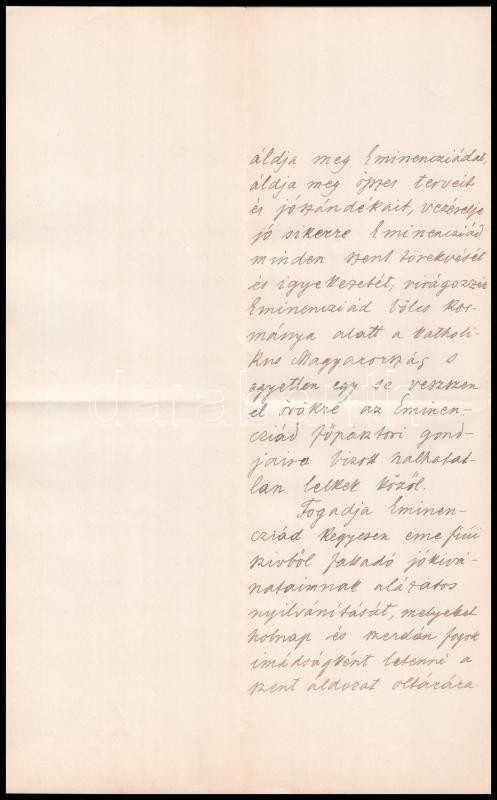 áldja meg Eminencziádat,
áldja meg összes terveit
és jószándékait, vezérelje
jó sikerre Eminencziád
minden szent törekvését
és igyekezetét, virágozzék
Eminencziád bölcs kor-
mánya alatt a katholi-
kus Magyarország s
egyetlen egy se vesszen
el örökre az Eminen-
cziád főpásztori gond-
jaira bizott halhatat-
lan lelkek közől.
Fogadja Eminen-
cziád kegyesen eme fiúi
szivből fakadó jókivá-
nataimnak alázatos
nyilvánitását, melyeket
holnap és szerdán fogok
imádságként letenni a
szent áldozat oltárára.
darabanth